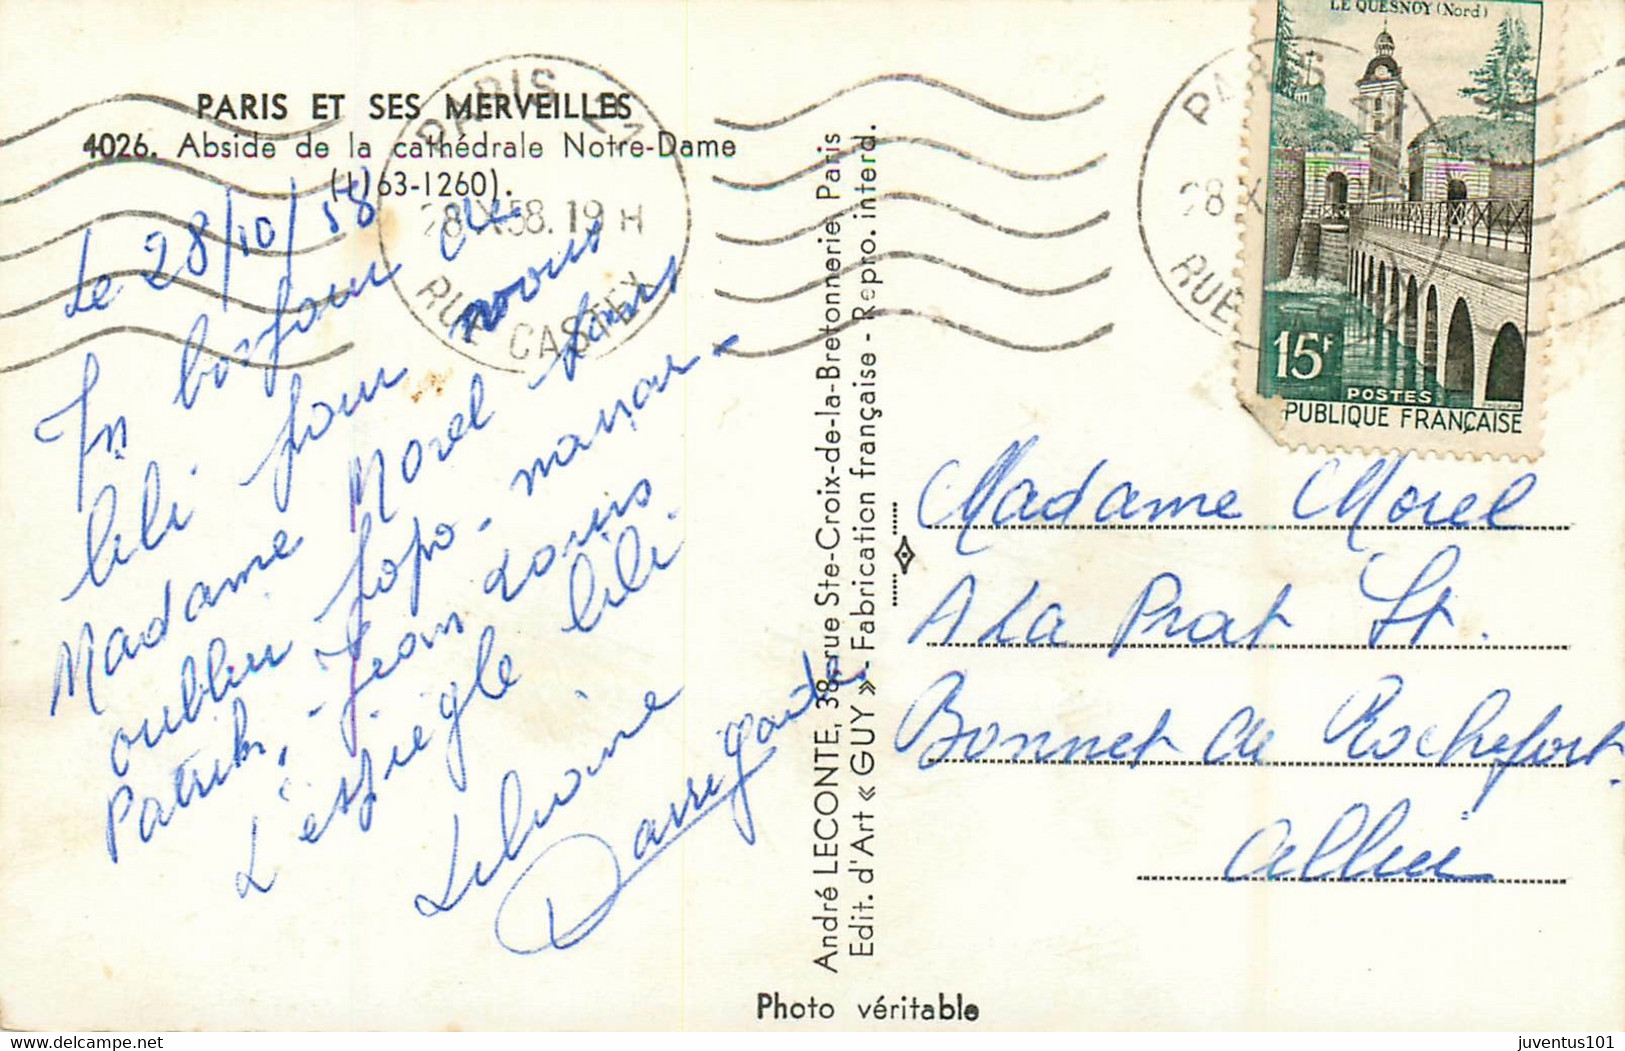 PARIS ET SES MERVEILLES
4026. Abside de la cathédrale Notre-Dame
(1163-1260).
Le 28/10/58
Un bonjour de
lili pour vous
Madame Morel sans
oublier popo - manou -
Patrik, - Jean Louis
L'espiegle lili.
Liliane
Darrigade
PARIS
28 X 58. 19 H
RUE CASTEX
André LECONTE, 38, rue Ste-Croix-de-la-Bretonnerie Paris
Edit. d'Art « GUY » - Fabrication française - Repro. interd.
Photo véritable
LE QUESNOY (Nord)
15F
POSTES
PUBLIQUE FRANÇAISE
PARIS
28 X
RUE
Madame Morel
A La Prat St.
Bonnet de Rochefort
Allier
juventus101